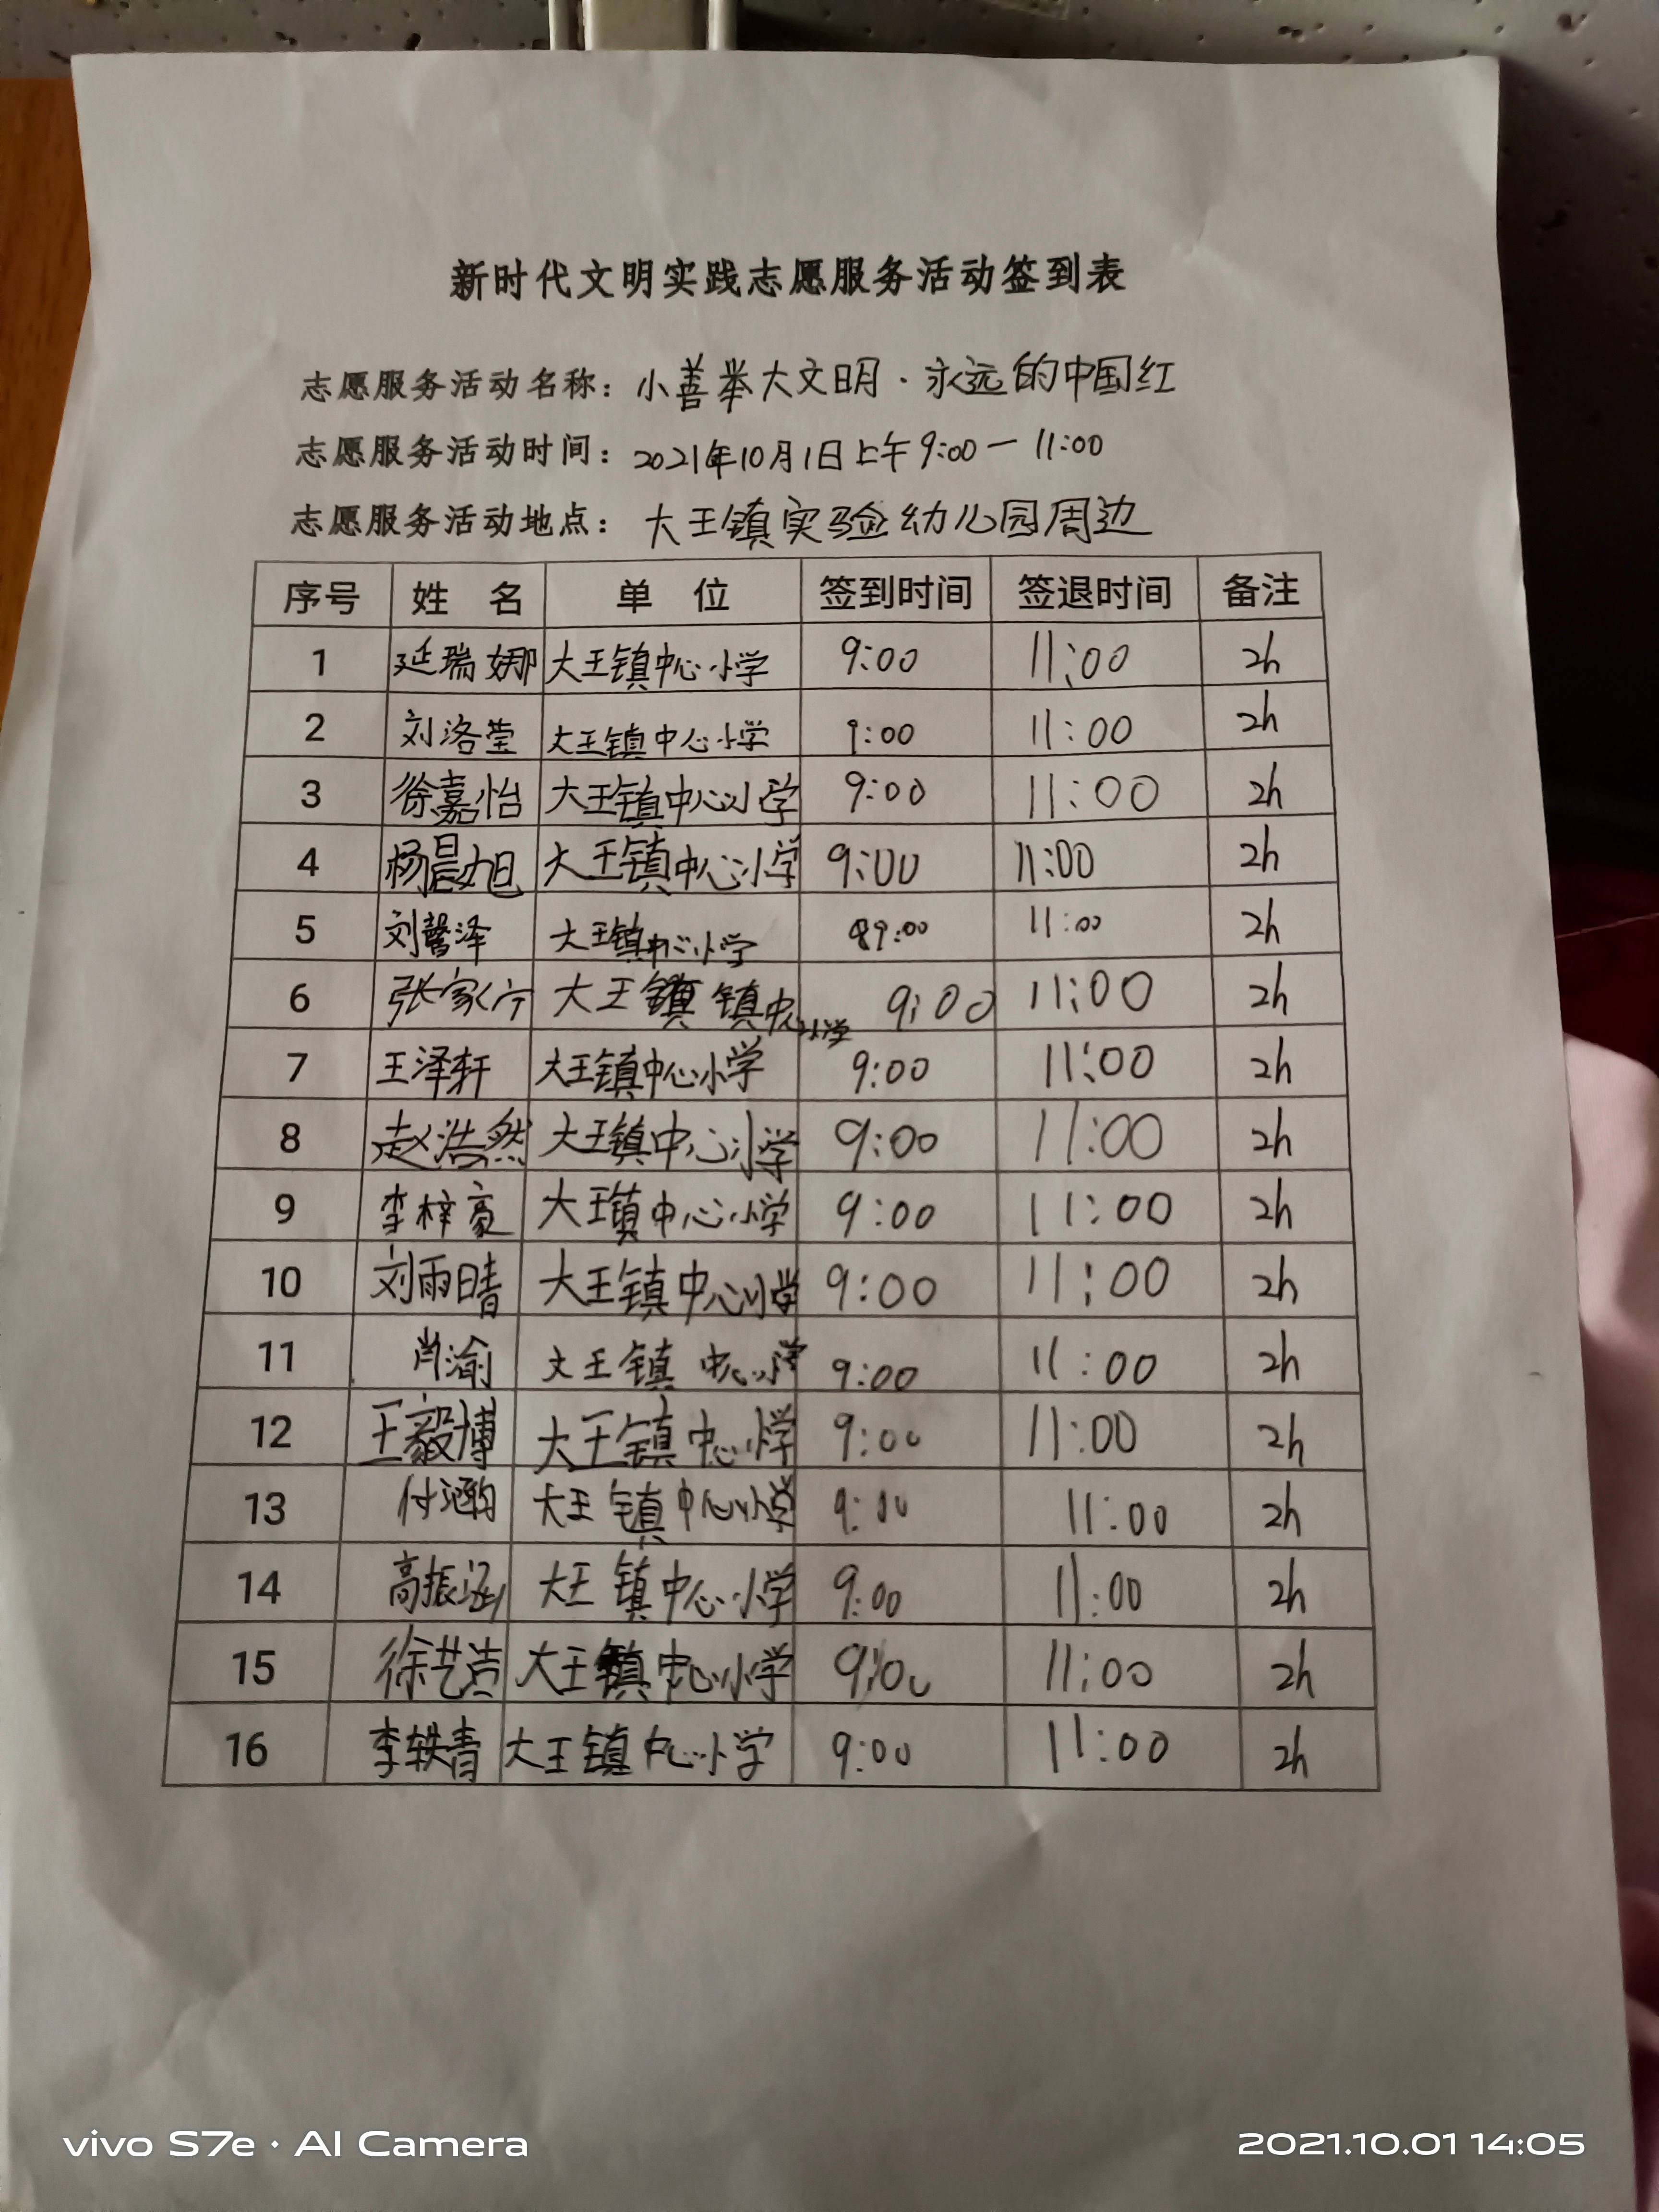 新时代文明实践志愿服务活动签到表
志愿服务活动名称：小善举大文明·永远的中国红
志愿服务活动时间：2021年10月1日上午9:00一11:00
志愿服务活动地点：大王镇实验幼儿园周边
序号 姓 名 单 位 签到时间 签退时间 备注
1 延瑞娜 大王镇中心小学 9:00 11:00 2h
2 刘洛莹 大王镇中心小学 9:00 11:00 2h
3 徐嘉怡 大王镇中心小学 9:00 11:00 2h
4 杨晨旭 大王镇中心小学 9:00 11:00 2h
5 刘馨泽 大王镇中心小学 9:00 11:00 2h
6 张家宁 大王镇中心小学 9:00 11:00 2h
7 王泽轩 大王镇中心小学 9:00 11:00 2h
8 赵浩然 大王镇中心小学 9:00 11:00 2h
9 李梓豪 大王镇中心小学 9:00 11:00 2h
10 刘雨晴 大王镇中心小学 9:00 11:00 2h
11 肖渝 大王镇中心小学 9:00 11:00 2h
12 王毅博 大王镇中心小学 9:00 11:00 2h
13 大王镇中心小学 9:00 11:00 2h
14 高振涵 大王镇中心小学 9:00 11:00 2h
15 徐艺洁 大王镇中心小学 9:00 11:00 2h
16 李轶青 大王镇中心小学 9:00 11:00 2h
vivo S7e · AI Camera
2021.10.01 14:05